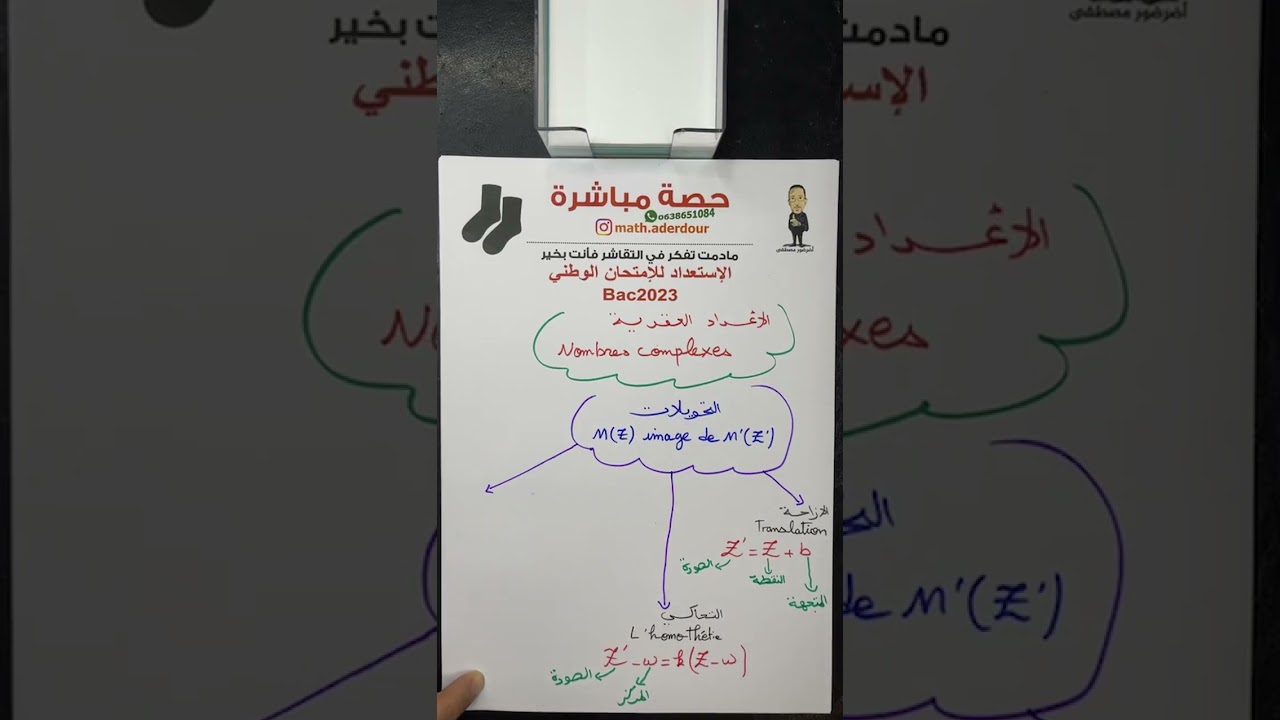 حصة مباشرة
0638651084
math.aderdour
أضرضور مصطفى
مادمت تفكر في التقاشر فأنت بخير
الإستعداد للإمتحان الوطني
Bac2023
الأعداد العقدية
Nombres complexes
التحويلات
M(Z) image de M'(Z')
الإزاحة
Translation
Z' = Z + b
الصورة
النقطة
المتجهة
التحاكي
L'homothétie
Z' - ω = k(Z - ω)
الصورة
المركز